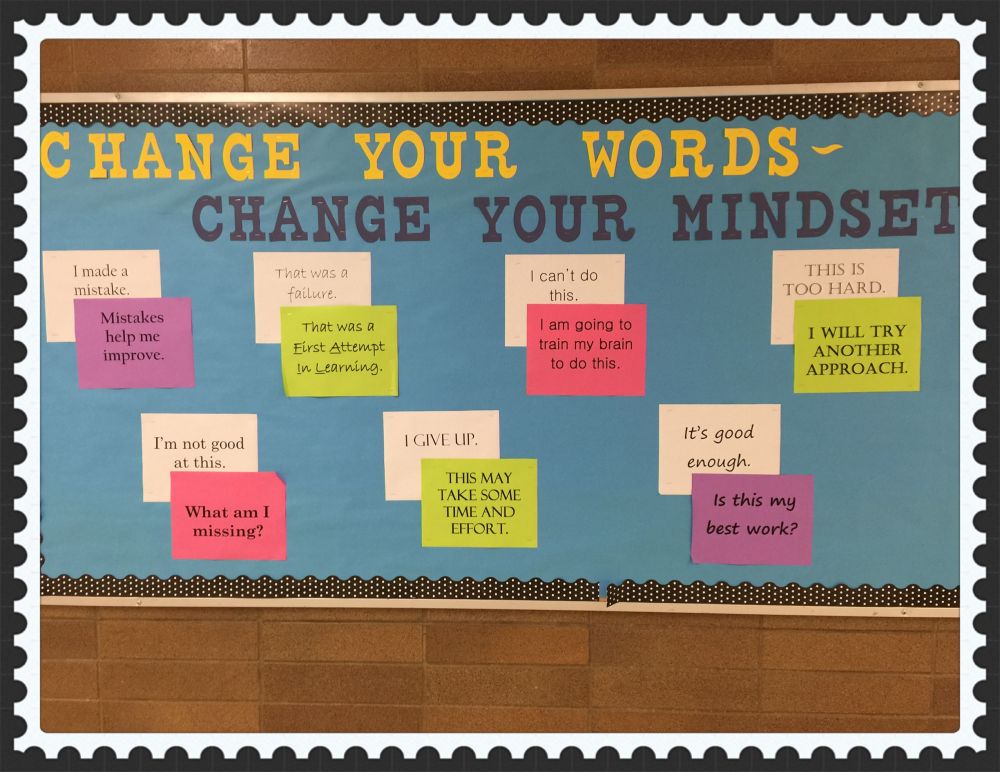 CHANGE YOUR WORDS~
CHANGE YOUR MINDSET
I made a
mistake.
Mistakes
help me
improve.
That was a
failure.
That was a
First Attempt
In Learning.
I can't do
this.
I am going to
train my brain
to do this.
THIS IS
TOO HARD.
I WILL TRY
ANOTHER
APPROACH.
I'm not good
at this.
What am I
missing?
I GIVE UP.
THIS MAY
TAKE SOME
TIME AND
EFFORT.
It's good
enough.
Is this my
best work?